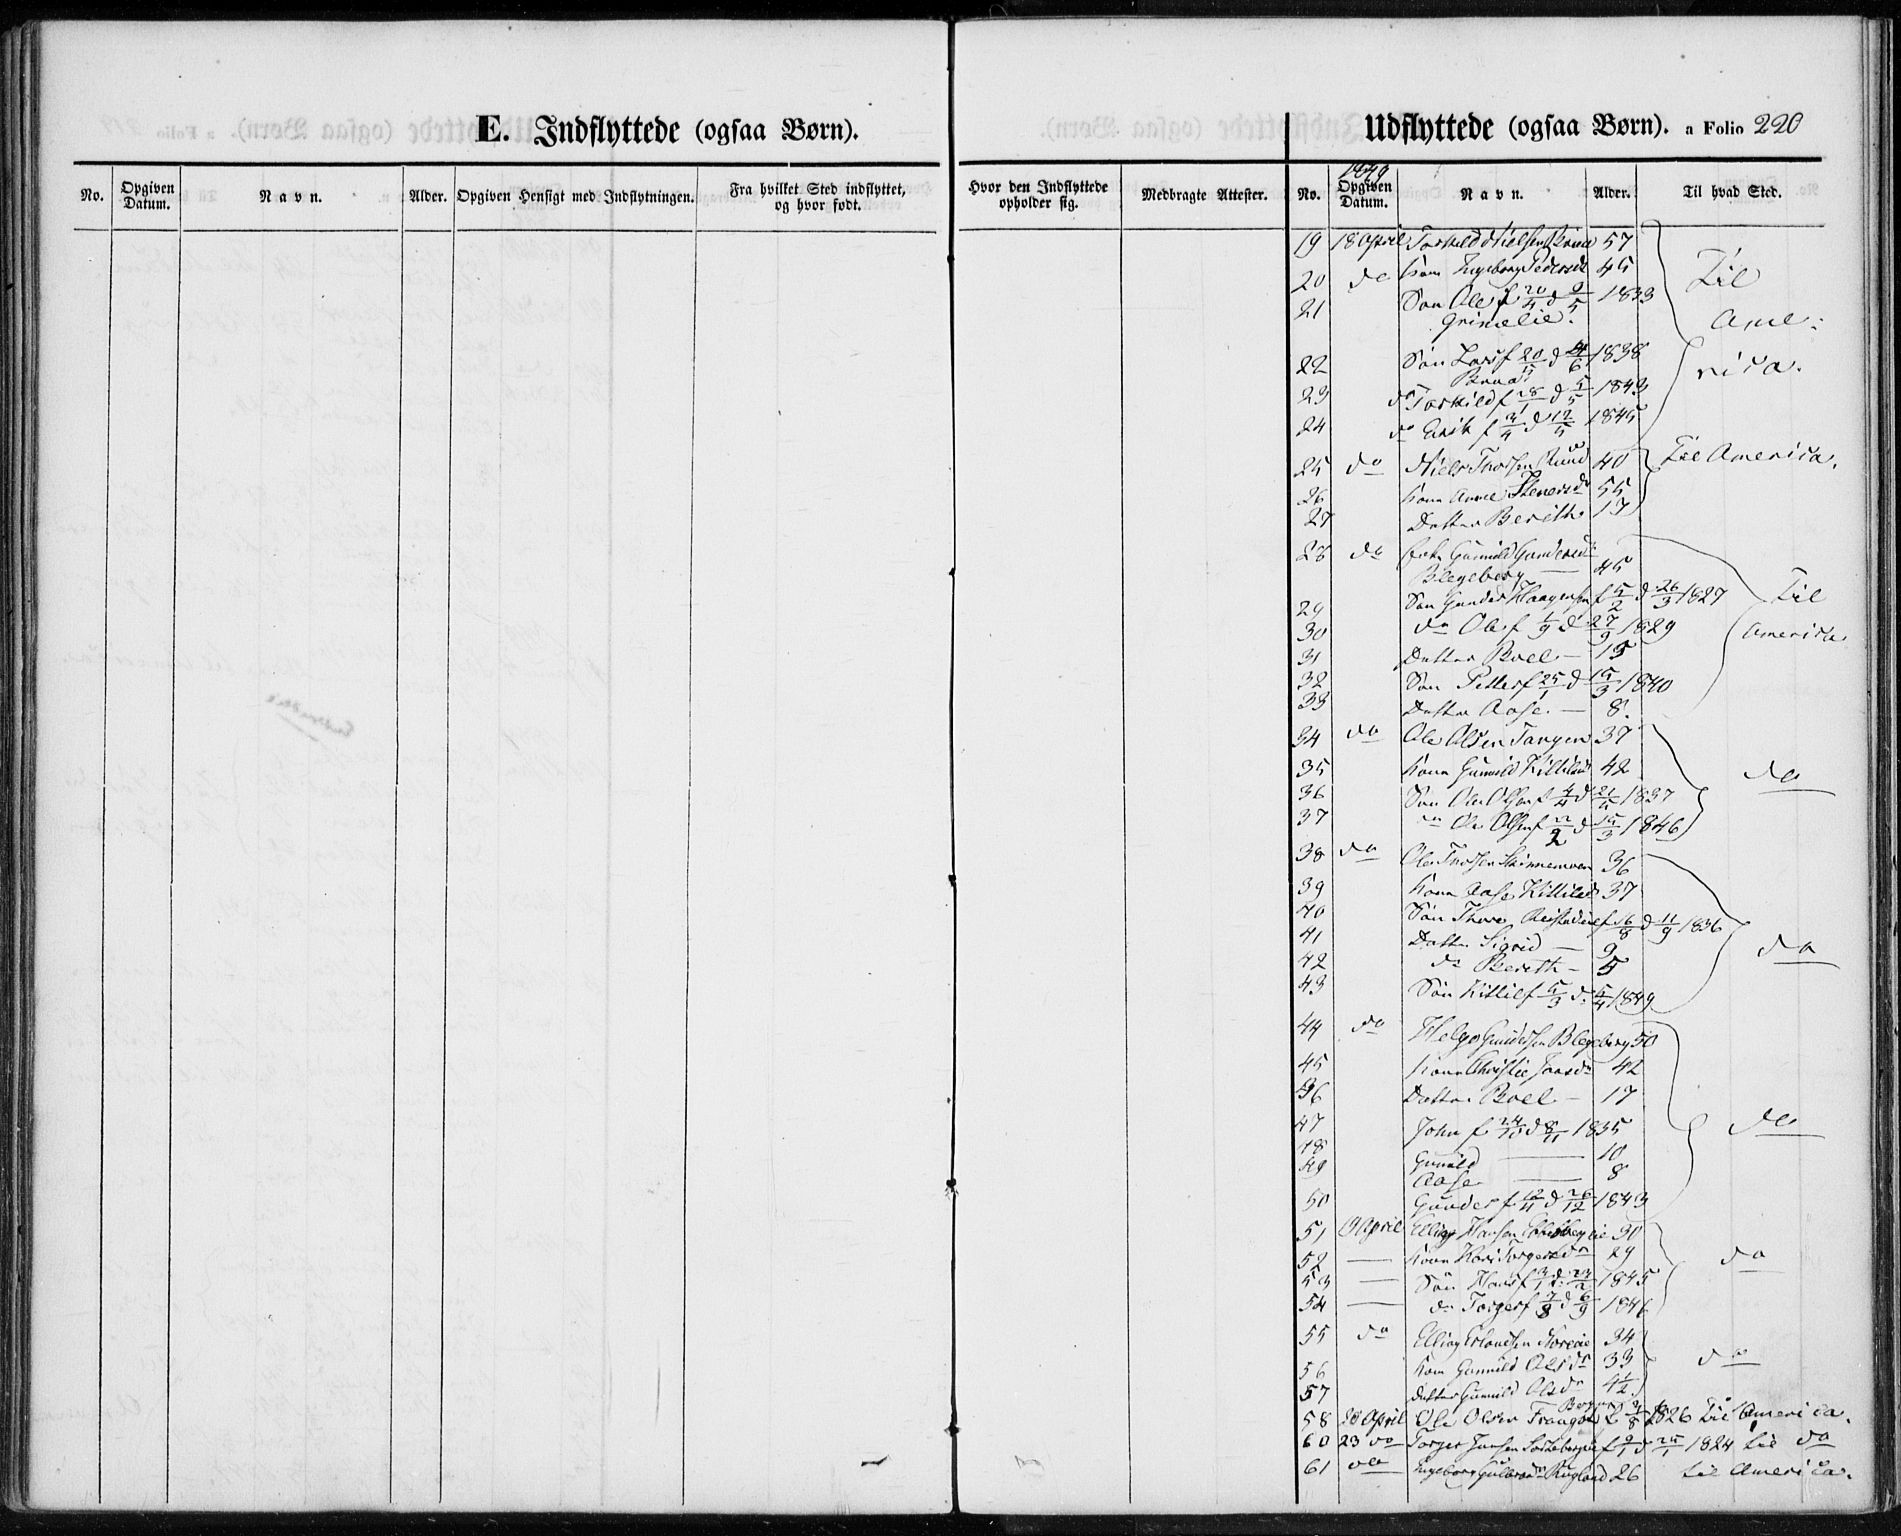 E. Indflyttede (ogsaa Børn).
No. Opgiven Datum. Navn. Alder. Opgiven Hensigt med Indflytningen. Fra hvilket Sted indflyttet, og hvor født.
Hvor den Indflyttede opholder sig. Medbragte Attester.
Udflyttede (ogsaa Børn). a Folio 220
1849
No. Opgiven Datum. Navn. Alder. Til hvad Sted.
19 18 April Torkild Nielsen 57
20 do Kone Ingeborg Pedersdr 45
21 Søn Ole f 20/4 d 9/5 1833
Til
Ame-
rica.
22 Søn Lars f 20/5 d 4/6 1838
23 do Torkild f 28/1 d 5/5 1843
24 do Erik f 3/4 d 12/5 1845
25 do Niels Thorsen Ruud 40 Til America.
26 Kone Anne Stenersdr 55
27 Datter Berith 17
28 do Gunnild Gundersdr
Blegeberg 45
29 Søn Gunder Haagensen f 5/2 d 26/3 1827 Til
30 do Ole f 1/9 d 27/9 1829 America
31 Datter Boel — 15
32 Søn Petter f 25/1 d 15/3 1840
33 Datter Aase — 8
34 do Ole Olsen Tangen 37
35 Kone Gunnild Kittilsdr 42 do
36 Søn Ole Olsen f 4/4 d 21/5 1837
37 do Ole Olsen f 22/2 d 15/3 1846
38 do Ole Thorsen 36
39 Kone Aase Kittilsd 37
40 Søn Thore f 16/8 d 11/9 1836
41 Datter Sigrid — 9 do
42 do Berith — 5
43 Søn Kittil f 5/3 d 5/4 1849
44 do Helge Gundersen Blegeberg 50
45 Kone Christie 42
36 Datter Boel — 17
47 John f 24/10 d 8/11 1835 do
48 Gunild — 10
49 Aase — 8
50 Gunder f 12/11 d 26/12 1843
51 19 April Elling Hansen 30
52 — Kone Kari Torgersdr 29 do
53 — Søn Hans f 3/1 d 23/2 1845
54 — do Torger f 7/8 d 6/9 1846
55 do Elling 34
56 Kone Gunnild Olsdr 33 do
57 Datter Gunnild Olsdr 4½
58 20 April Ole Olsen 1826 til America.
60 23 do Torger Jansen 1824 til do
61 do Ingeborg Rugland 26 til America.